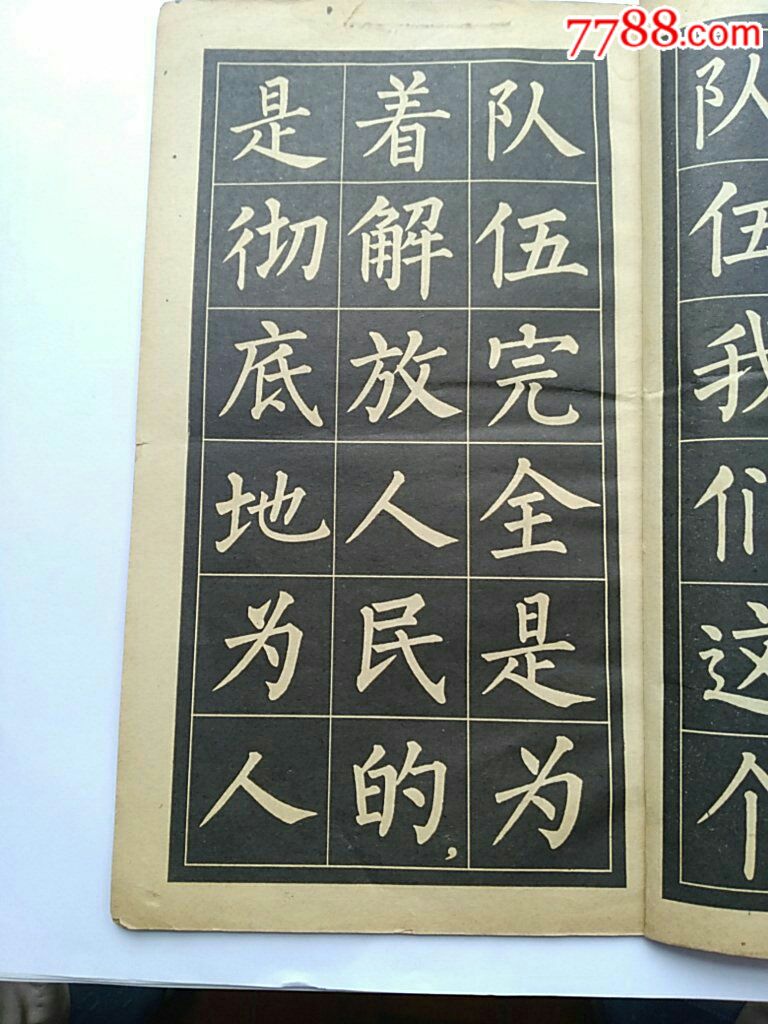 7788.com
队伍我们这个
队伍完全是为
着解放人民的，
是彻底地为人